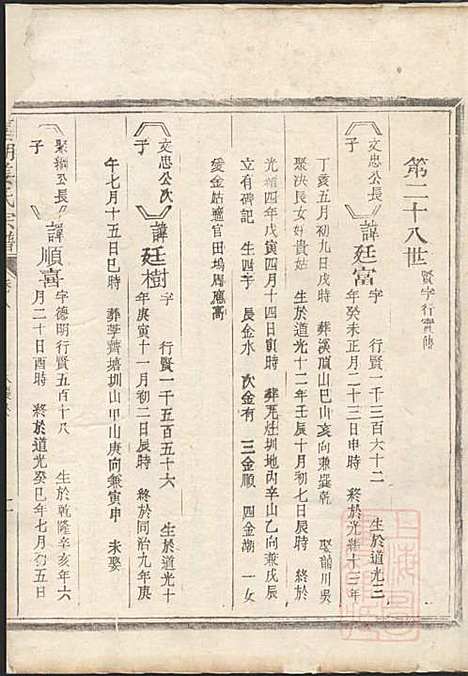 第二十八世 賢字行實傳
文忠公長子 諱廷富 字 行賢一千三百六十二 生於道光三
年癸未正月二十三日申時 終於光緒十三年
丁亥五月初九日戌時 葬溪頂山巳山亥向兼巽乾 娶前川吳
聚洪長女姉貴姑 生於道光十二年壬辰十月初七日辰時 終於
光緒四年戊寅四月十四日寅時 葬圳地丙辛山乙向兼戊辰
立有碑記 生四子 長金水 次金有 三金順 四金潮 一女
愛金姑 適官田塢周應高
文忠公次子 諱廷樹 字 行賢一千五百五十六 生於道光十
年庚寅十一月初二日辰時 終於同治九年庚
午七月十五日巳時 葬荸薺塘圳山甲山庚向兼寅申 未娶
聚綱公長子 諱順喜 字德明行賢五百十八 生於乾隆辛亥年六
月二十日酉時 終於道光癸巳年七月初五日
氏宗譜